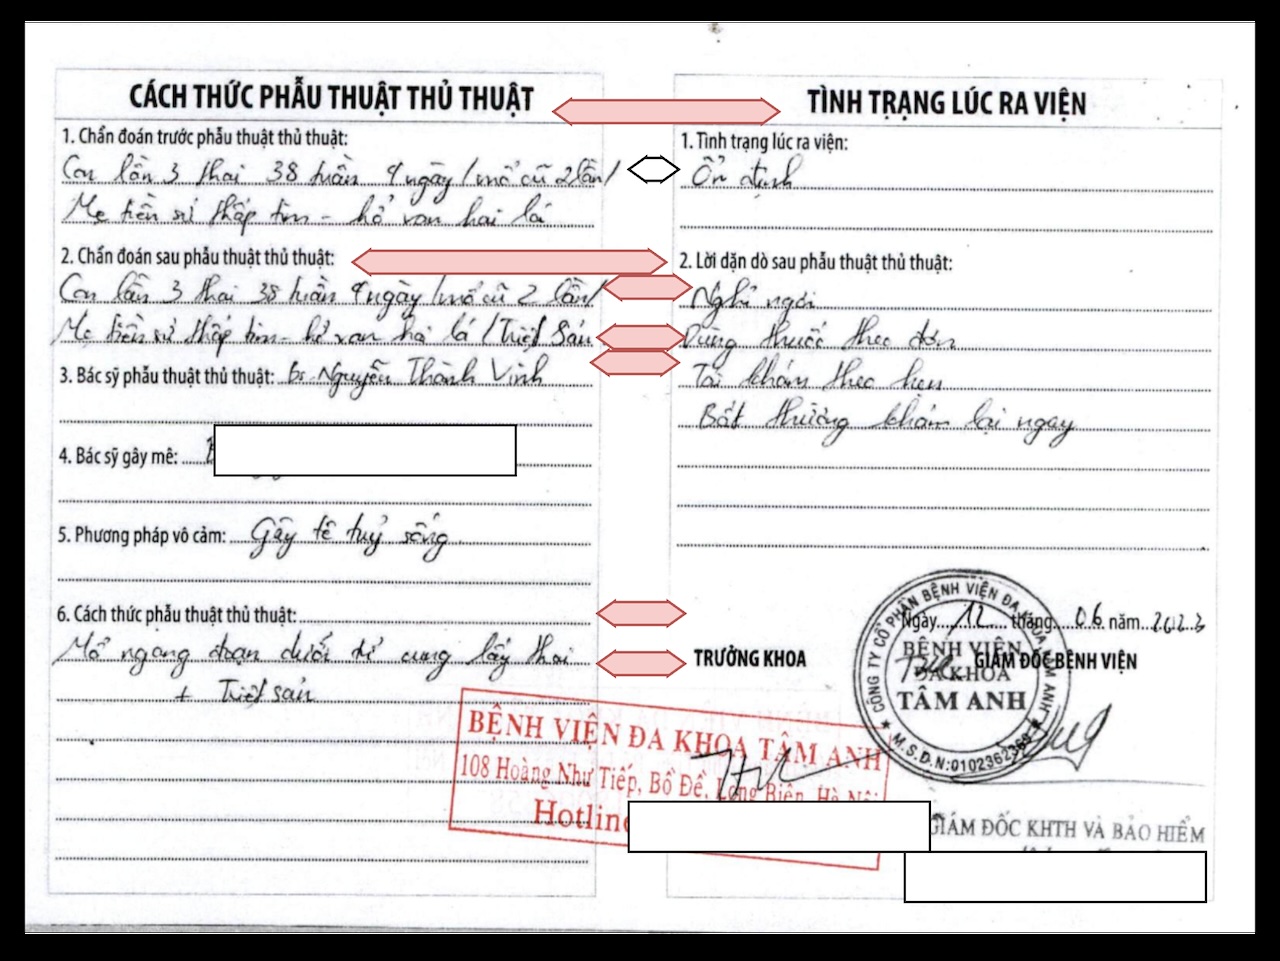 CÁCH THỨC PHẪU THUẬT THỦ THUẬT
1. Chẩn đoán trước phẫu thuật thủ thuật:
Con lần 3 thai 38 tuần 4 ngày / mổ cũ 2 lần /
Mẹ tiền sử thấp tim - hở van hai lá
2. Chẩn đoán sau phẫu thuật thủ thuật:
Con lần 3 thai 38 tuần 4 ngày / mổ cũ 2 lần /
Mẹ tiền sử thấp tim - hở van hai lá / Triệt Sản
3. Bác sỹ phẫu thuật thủ thuật: Bs. Nguyễn Thành Vinh
4. Bác sỹ gây mê:
5. Phương pháp vô cảm: Gây tê tuỷ sống
6. Cách thức phẫu thuật thủ thuật:
Mổ ngang đoạn dưới tử cung lấy thai
+ Triệt sản
TÌNH TRẠNG LÚC RA VIỆN
1. Tình trạng lúc ra viện:
Ổn định
2. Lời dặn dò sau phẫu thuật thủ thuật:
Nghỉ ngơi
Dùng thuốc theo đơn
Tái khám theo hẹn
Bất thường khám lại ngay
Ngày 12 tháng 06 năm 2023
TRƯỞNG KHOA
GIÁM ĐỐC BỆNH VIỆN
CÔNG TY CỔ PHẦN BỆNH VIỆN ĐA KHOA TÂM ANH
BỆNH VIỆN
ĐA KHOA
TÂM ANH
M.S.D.N:0102362369
BỆNH VIỆN ĐA KHOA TÂM ANH
108 Hoàng Như Tiếp, Bồ Đề, Long Biên, Hà Nội
Hotline
GIÁM ĐỐC KHTH VÀ BẢO HIỂM